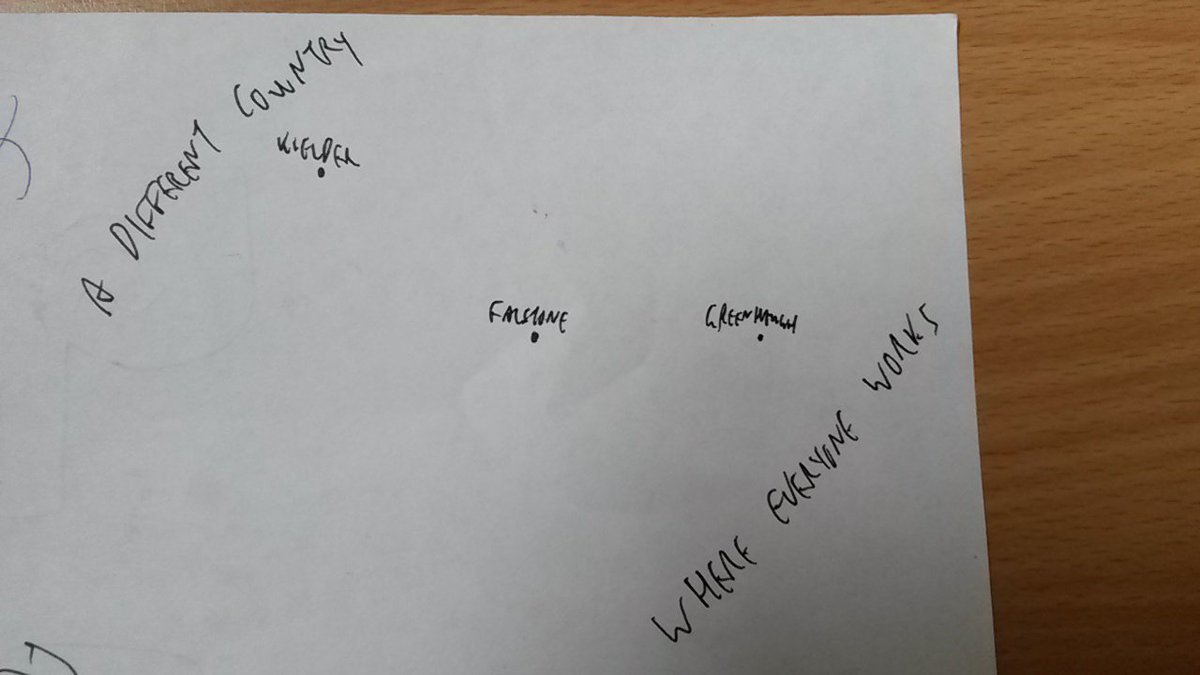 A DIFFERENT COUNTRY
KIELDER
FALSTONE
GREENHAUGH
WHERE EVERYONE WORKS